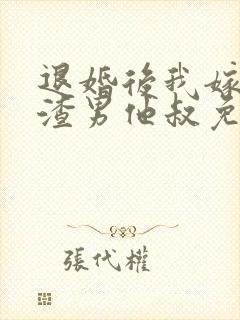 退婚後我嫁
渣男他叔免
張代權